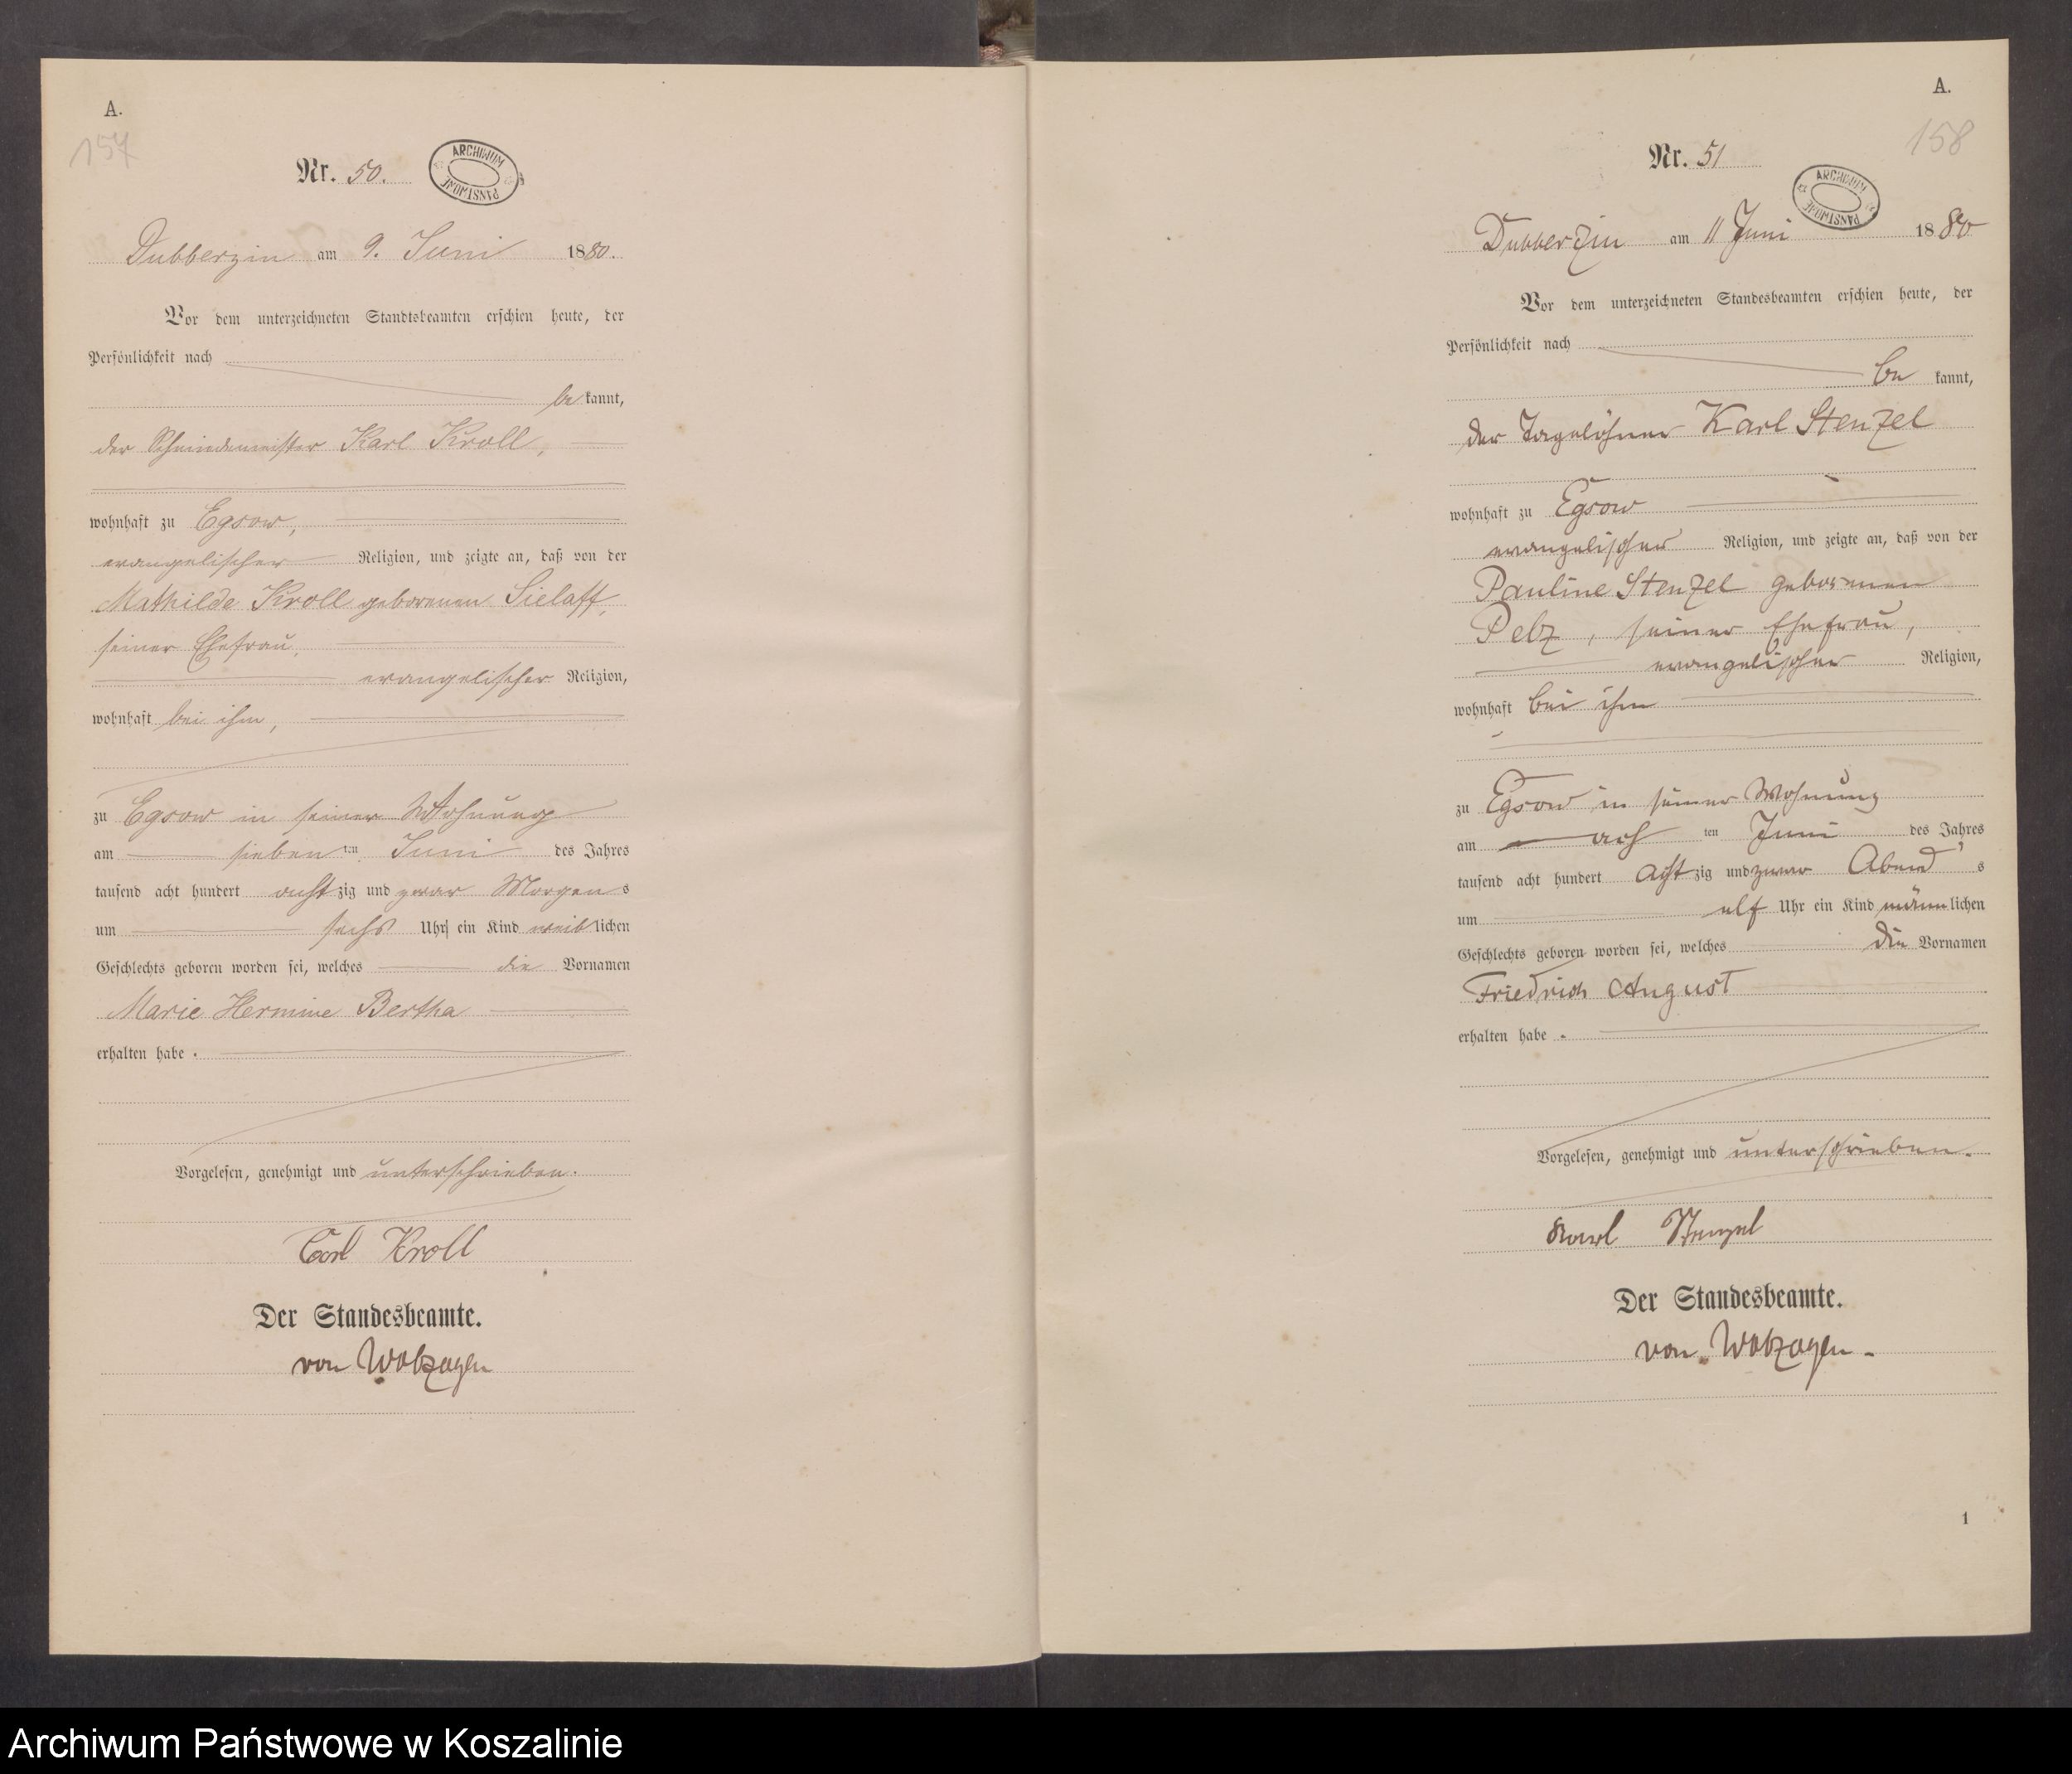 A.
157
Nr. 50.
ARCHIWUM PAŃSTWOWE
Dubberzin am 9. Juni 1880.
Vor dem unterzeichneten Standesbeamten erschien heute, der
Persönlichkeit nach
be kannt,
der Schmiedemeister Karl Kroll,
wohnhaft zu Egsow,
evangelischer Religion, und zeigte an, daß von der
Mathilde Kroll geborenen Sielaff,
seiner Ehefrau,
evangelischer Religion,
wohnhaft bei ihm,
zu Egsow in seiner Wohnung
am sieben ten Juni des Jahres
tausend acht hundert acht zig und zwar Morgen s
um sechs Uhr ein Kind weib lichen
Geschlechts geboren worden sei, welches die Vornamen
Marie Hermine Bertha
erhalten habe.
Vorgelesen, genehmigt und unterschrieben.
Carl Kroll
Der Standesbeamte.
von Wolzogen
A.
158
Nr. 51
ARCHIWUM PAŃSTWOWE
Dubberzin am 11 Juni 1880
Vor dem unterzeichneten Standesbeamten erschien heute, der
Persönlichkeit nach
be kannt,
der Tagelöhner Karl Stenzel
wohnhaft zu Egsow
evangelischer Religion, und zeigte an, daß von der
Pauline Stenzel geborenen
Pelz, seiner Ehefrau,
evangelischer Religion,
wohnhaft bei ihm
zu Egsow in seiner Wohnung
am ach ten Juni des Jahres
tausend acht hundert acht zig und zwar Abend s
um elf Uhr ein Kind männ lichen
Geschlechts geboren worden sei, welches die Vornamen
Friedrich August
erhalten habe.
Vorgelesen, genehmigt und unterschrieben.
Karl Stenzel
Der Standesbeamte.
von Wolzogen.
1
Archiwum Państwowe w Koszalinie